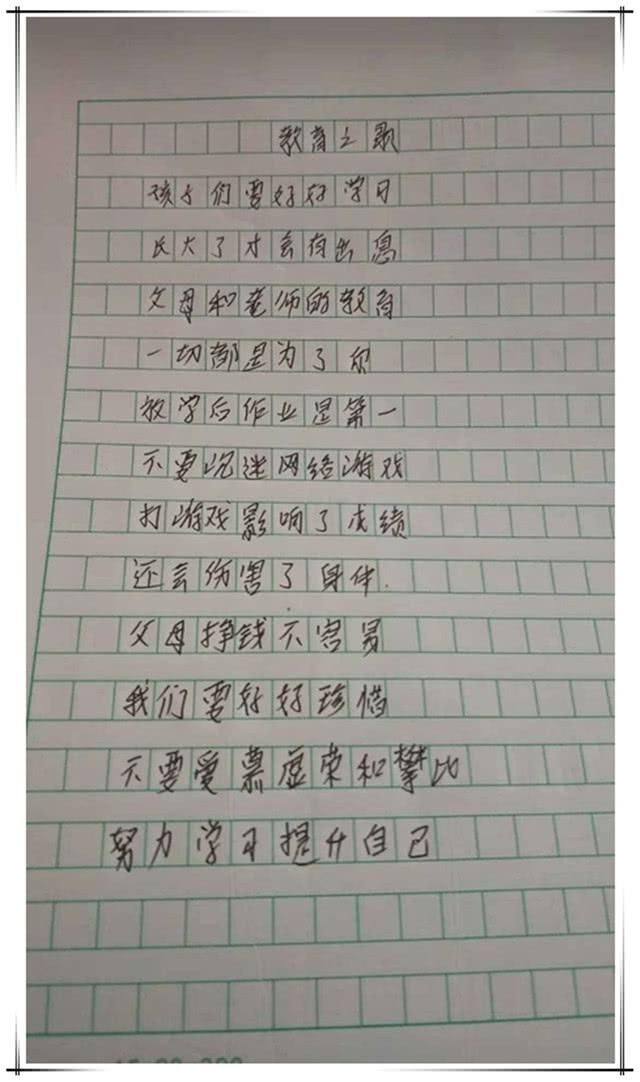 教育之歌
孩子们要好好学习
长大了才会有出息
父母和老师的教育
一切都是为了你
放学后作业是第一
不要沉迷网络游戏
打游戏影响了成绩
还会伤害了身体.
父母挣钱不容易
我们要好好珍惜
不要爱慕虚荣和攀比
努力学习提升自己